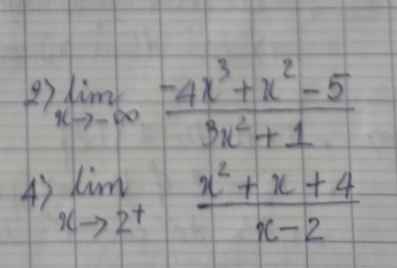 2) lim x→-∞ (-4x³ + x² - 5)/(3x² + 1)
4) lim x→2⁺ (x² + x + 4)/(x - 2)